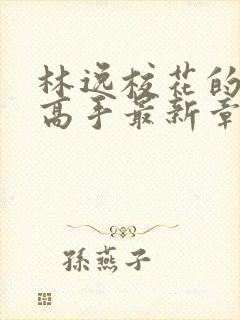 林逸校花的
高手最新章
孫燕子